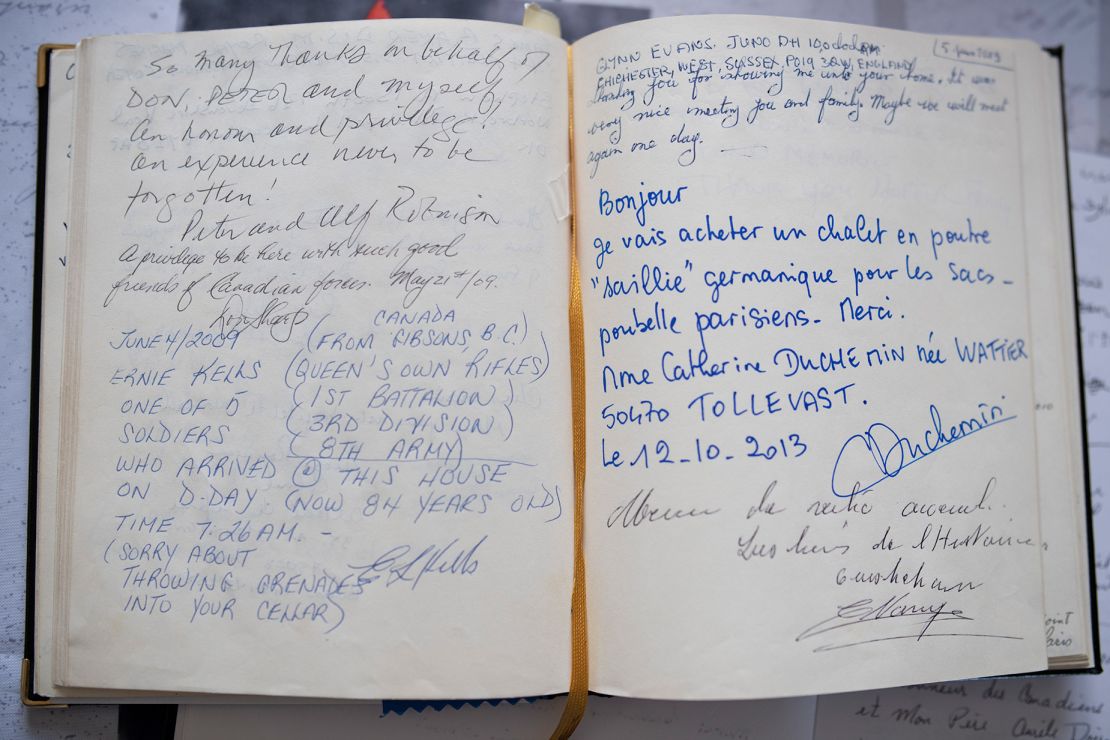 So many Thanks on behalf of
DON, PETER and myself,
An honour and privilege!
an experience never to be
forgotten!
Peter and Alf Robinson
A privilege to be here with such good
friends of Canadian forces. May 21st/09.
CANADA
JUNE 4/2009 (FROM GIBSONS B.C.)
ERNIE KELLS (QUEEN'S OWN RIFLES)
ONE OF 5 (1ST BATTALION)
SOLDIERS (3RD DIVISION)
(8TH ARMY)
WHO ARRIVED @ THIS HOUSE
ON D-DAY. (NOW 84 YEARS OLD)
TIME 7.26 AM. -
(SORRY ABOUT
THROWING GRENADES
INTO YOUR CELLAR)
GLYNN EVANS. JUNO DH
CHICHESTER, WEST, SUSSEX, PO19 3QW, ENGLAND
you for showing me into your home. It was
very nice meeting you and family. Maybe we will meet
again one day.
Bonjour
Je vais acheter un chalet en poutre
"saillie" germanique pour les sacs-
poubelle parisiens. Merci.
Mme Catherine DUCHEMIN née WATTIER
50470 TOLLEVAST.
Le 12_10_2013
Duchemin
de accueil.
de l'Histoire
des Canadiens
et Mon Père